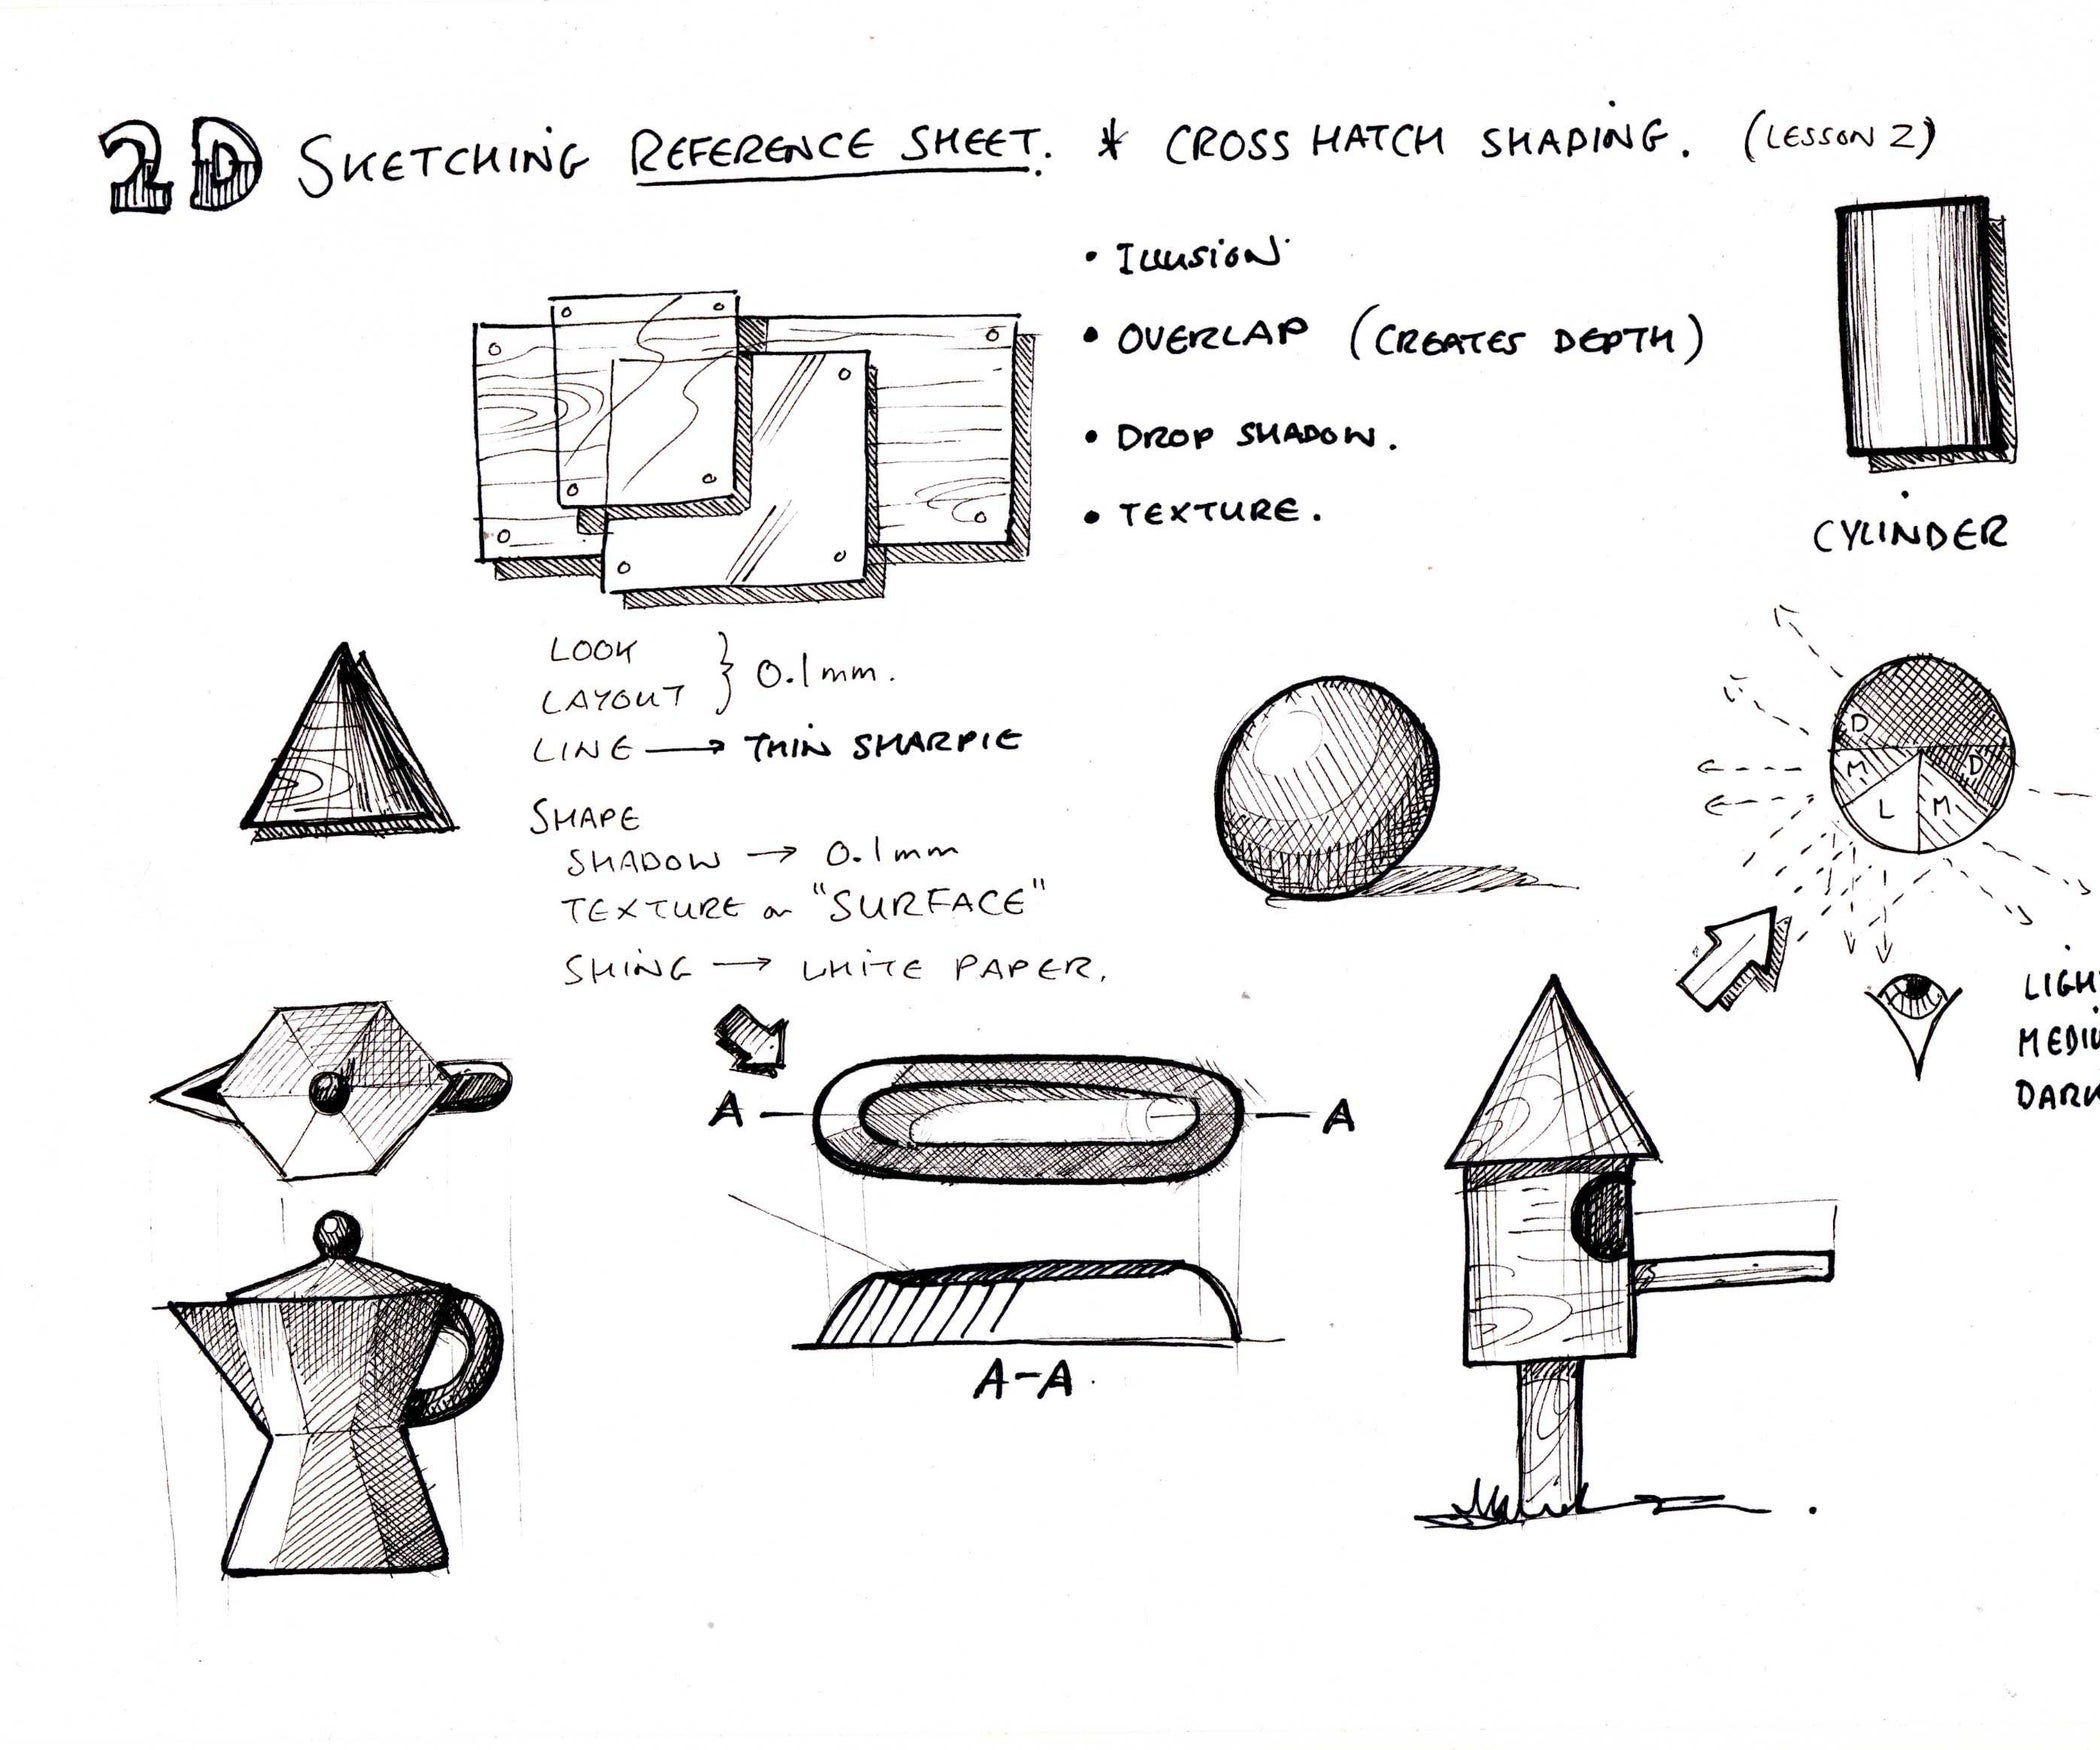 2D SKETCHING REFERENCE SHEET. * CROSS HATCH SHADING. (LESSON 2)
• ILLUSION
• OVERLAP (CREATES DEPTH)
• DROP SHADOW.
• TEXTURE.
CYLINDER
LOOK
LAYOUT } 0.1mm.
LINE → THIN SHARPIE
SHAPE
SHADOW → 0.1mm
TEXTURE or "SURFACE"
SHING → WHITE PAPER.
D
M
L
M
D
LIGH
MEDIU
DARK
A
A
A-A